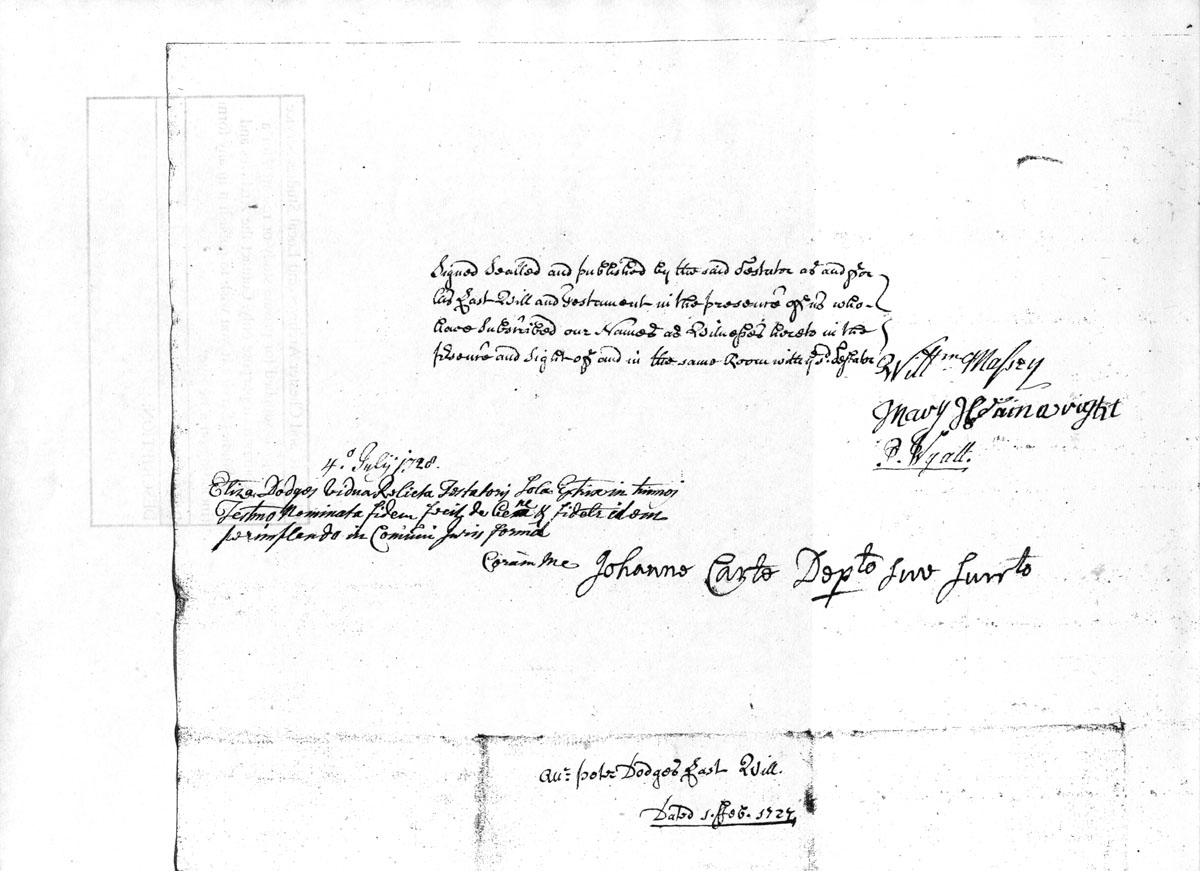 Signed Sealled and published by the said Testator as and for
his Last Will and Testament in the presence of us who
have Subscribed our Names as Witnesses hereto in the
presence and Sight of and in the same Room with ye sd. Testator
Willm Massey
Mary Wainwright
P. Wyatt.
4.o Julij 1728.
Eliza Dodges Vidua Relicta Testatoris Sola Extrix in
Testmo Nominata fidem fecit de bene & fidelr idem
perimplendo in Comuni Juris forma
Coram Me Johanne Carte Depto sive Surrto
Mr. Peter Dodges Last Will.
Dated 1. Feb. 1727